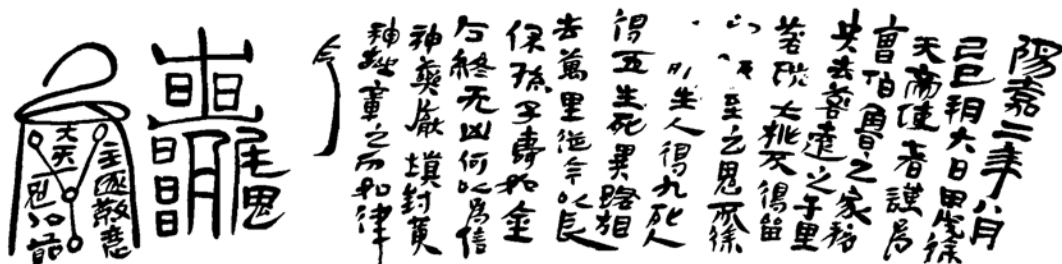 陽嘉二年八月
己巳朔六日甲戌徐
天帝使者謹為
曹伯魯之家移
央去咎遠之千里
咎殃大桃不得留
至之鬼所徐
生人得九死人
得五生死異路相
去萬里從今以長
保孫子壽如金
石終无凶何以為信
神藥厭塡封黃
神越章之印如律
令
大天一
主逐敫惡
鬼以節